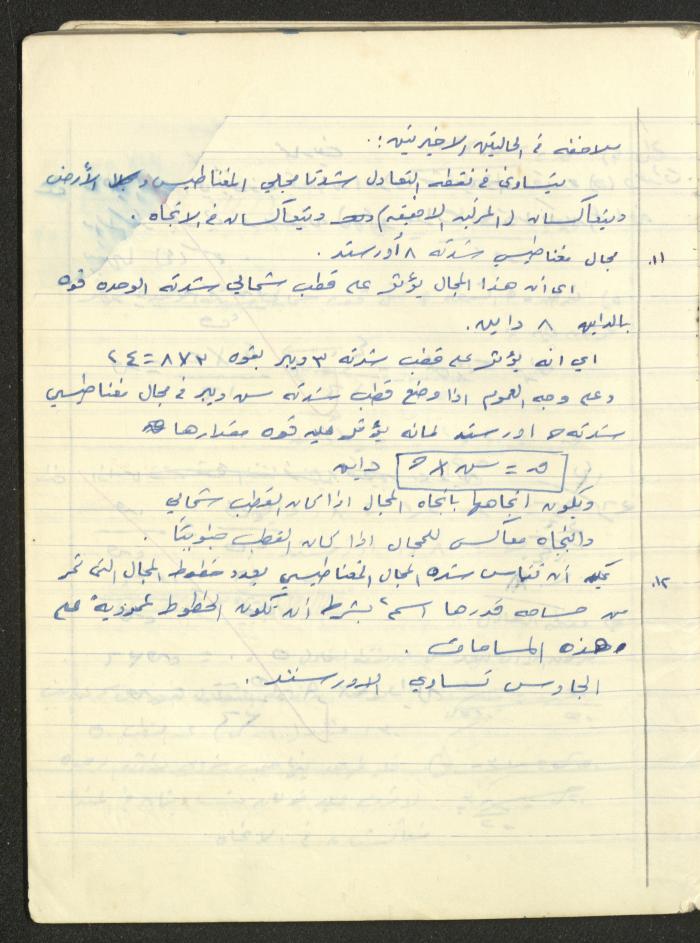 ملاحظه في الحالتين الاخيرتين :.
يتساوى في نقطة التعادل شدتا مجالي المغناطيس ومجال الأرض
ويتعاكسان (المركبه الافقيه) ويتعاكسان في الاتجاه .
١١. مجال مغناطيسي شدته ٨ أورستد .
اي ان هذا المجال يؤثر على قطب شمالي شدته الوحده قوه
بالداين ٨ داين.
اي انه يؤثر على قطب شدته ٣ ويبر بقوه ٣×٨=٢٤
وعلى وجه العموم اذا وضع قطب شدته س ويبر في مجال مغناطيسي
شدته ح اورستد فانه يؤثر عليه قوه مقدارها
ق = س × ح داين
ويكون اتجاهها باتجاه المجال اذا كان القطب شمالي
والاتجاه معاكس للمجال اذا كان القطب جنوبيًا .
١٢. يمكن أن تقاس شدة المجال المغناطيسي بعدد خطوط المجال التي تمر
من مساحه قدرها ١سم٢ بشرط أن تكون الخطوط عمودية على
هذه المساحات .
الجاوس تساوي الاورستد .